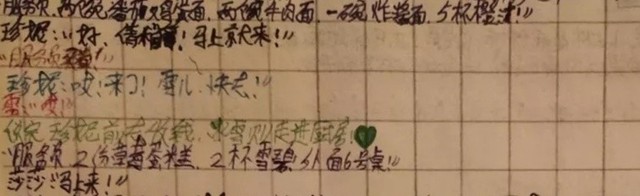 服务员，两碗番茄鸡蛋面，两碗牛肉面，一碗炸酱面，5杯橙汁！”
珍妮：“好，请稍等！马上就来！”
“服务员！”
珍妮：“哎！来了！雪儿，快去！”
雪：“哎！”
珍妮前去收钱，雪儿走进厨房
“服务员，2份草莓蛋糕，2杯雪碧，外面6号桌！”
莎莎：“马上来！”